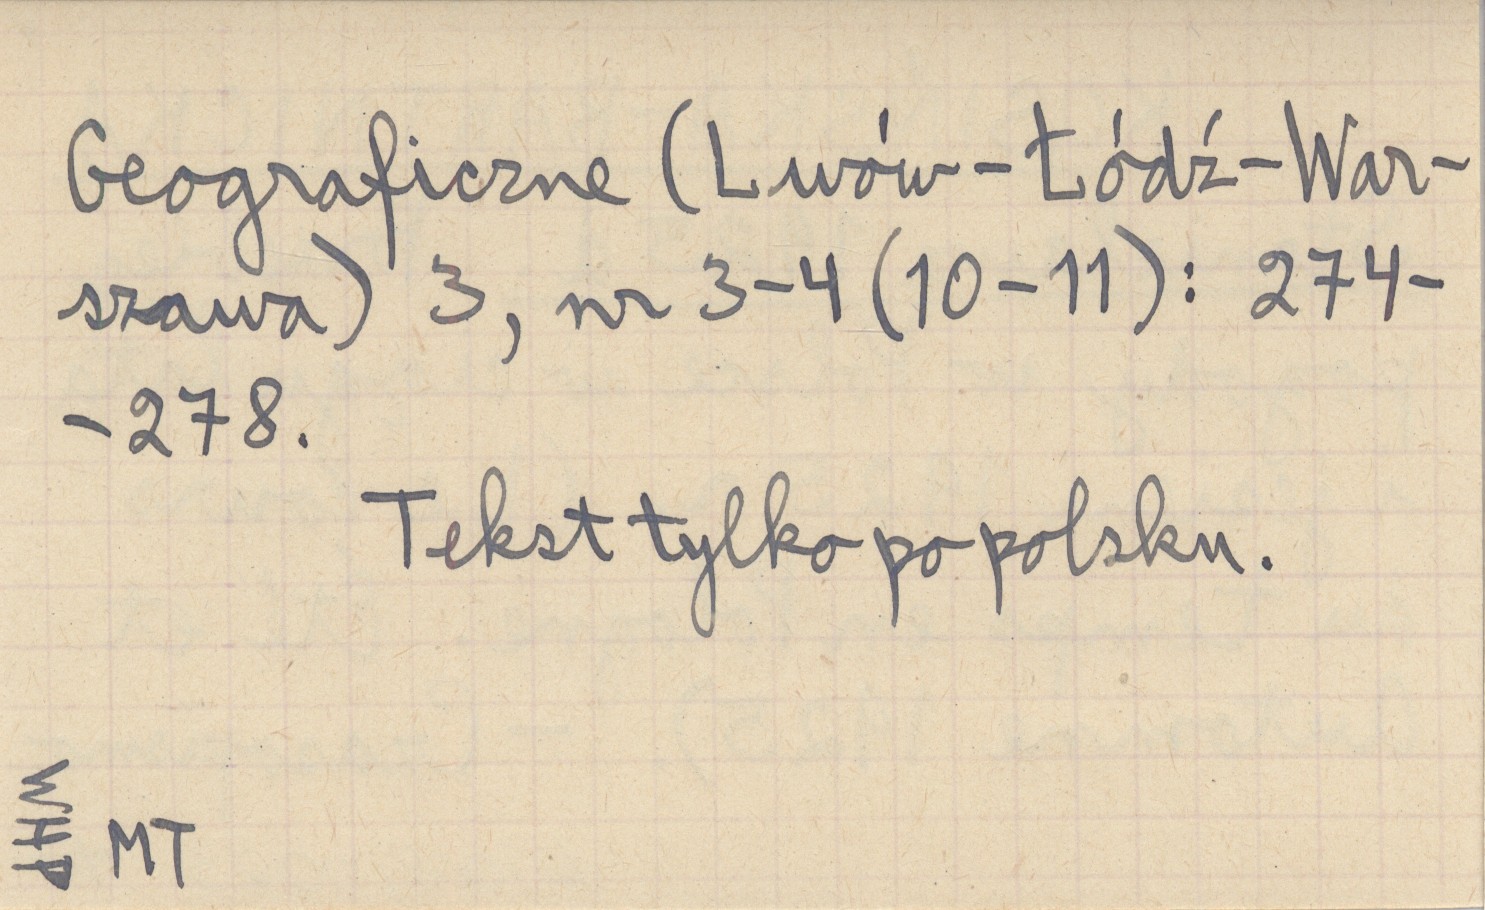 Geograficzne (Lwów-Łódź-War-
szawa) 3, nr 3-4 (10-11): 274-
-278.
Tekst tylko po polsku.
WHP
MT